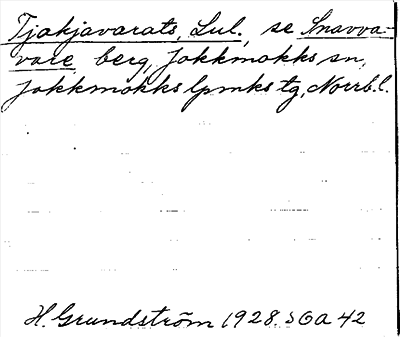 Tjakjavarats, Lul., se Snavva-
vare, berg, Jokkmokks sn,
Jokkmokks lpmks tg, Norrb. l.
H. Grundström 1928. SOA 42